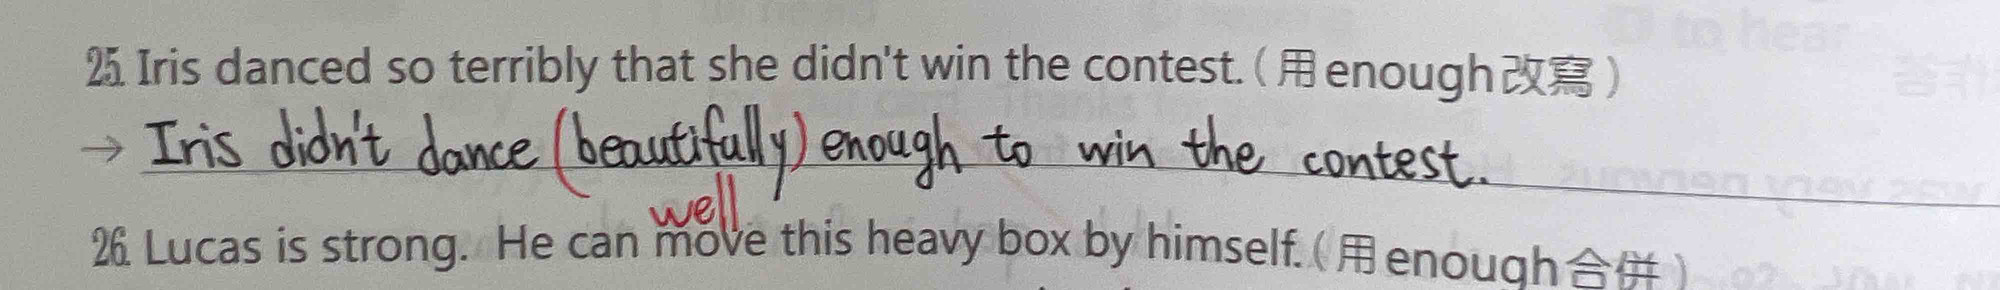 25. Iris danced so terribly that she didn't win the contest. (用enough改寫)
→ Iris didn't dance (beautifully) enough to win the contest.
well
26. Lucas is strong. He can move this heavy box by himself. (用enough合併)